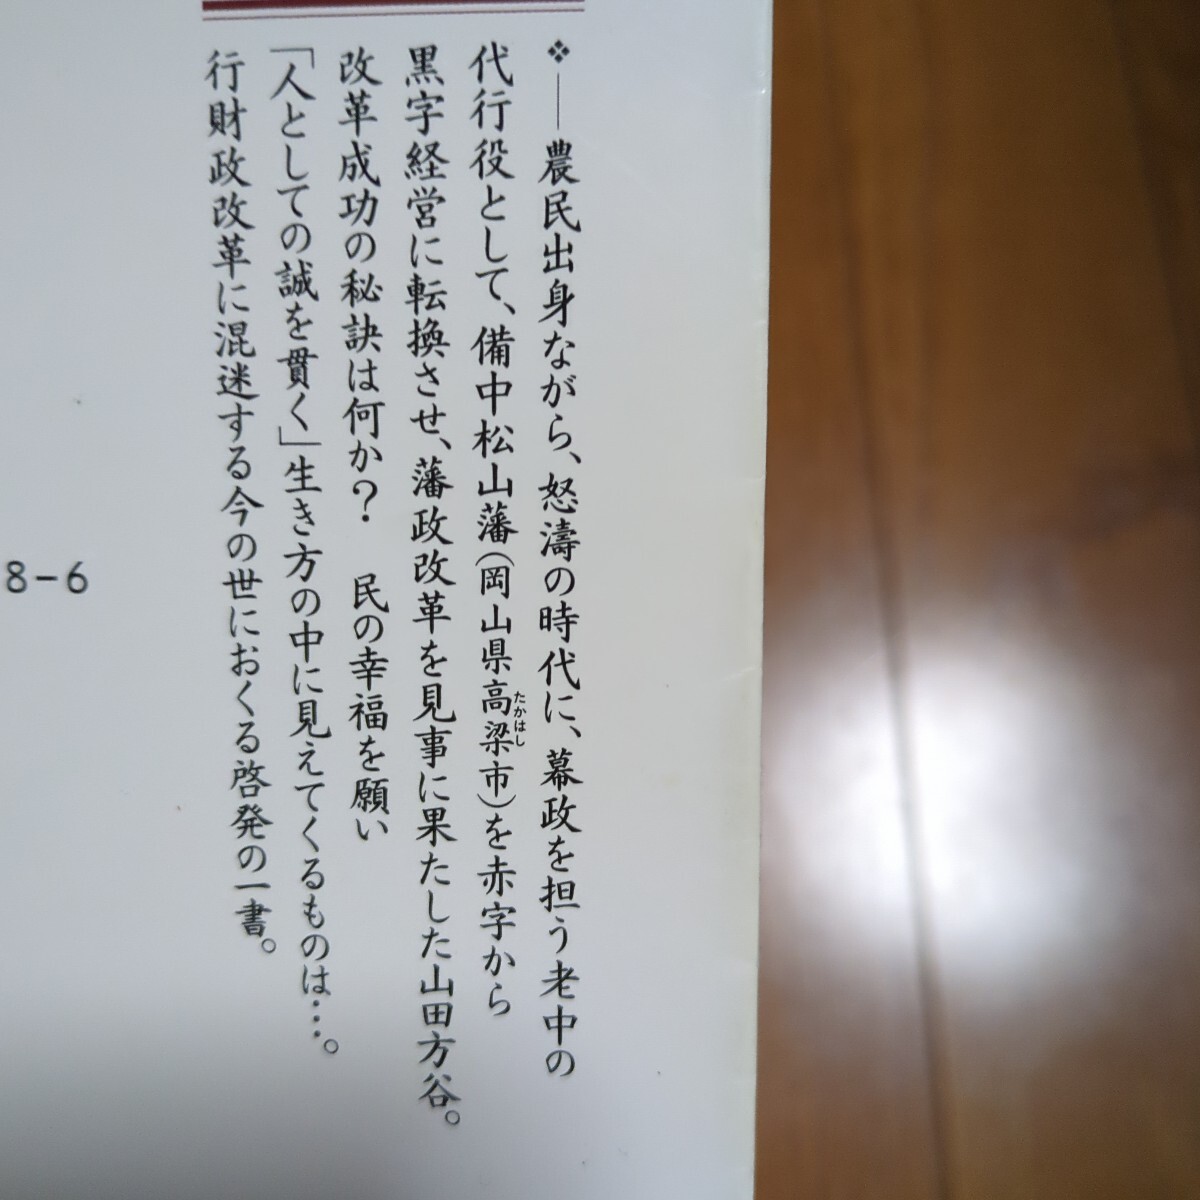 ❖──農民出身ながら、怒濤の時代に、幕政を担う老中の
代行役として、備中松山藩(岡山県高梁市)を赤字から
たかはし
黒字経営に転換させ、藩政改革を見事に果たした山田方谷。
改革成功の秘訣は何か？　民の幸福を願い
「人としての誠を貫く」生き方の中に見えてくるものは…。
行財政改革に混迷する今の世におくる啓発の一書。
8-6